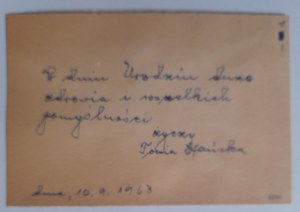 W dniu Urodzin dużo
zdrowia i wszelkich
pomyślności.
życzy
Tonia
dnia, 10.9.1963